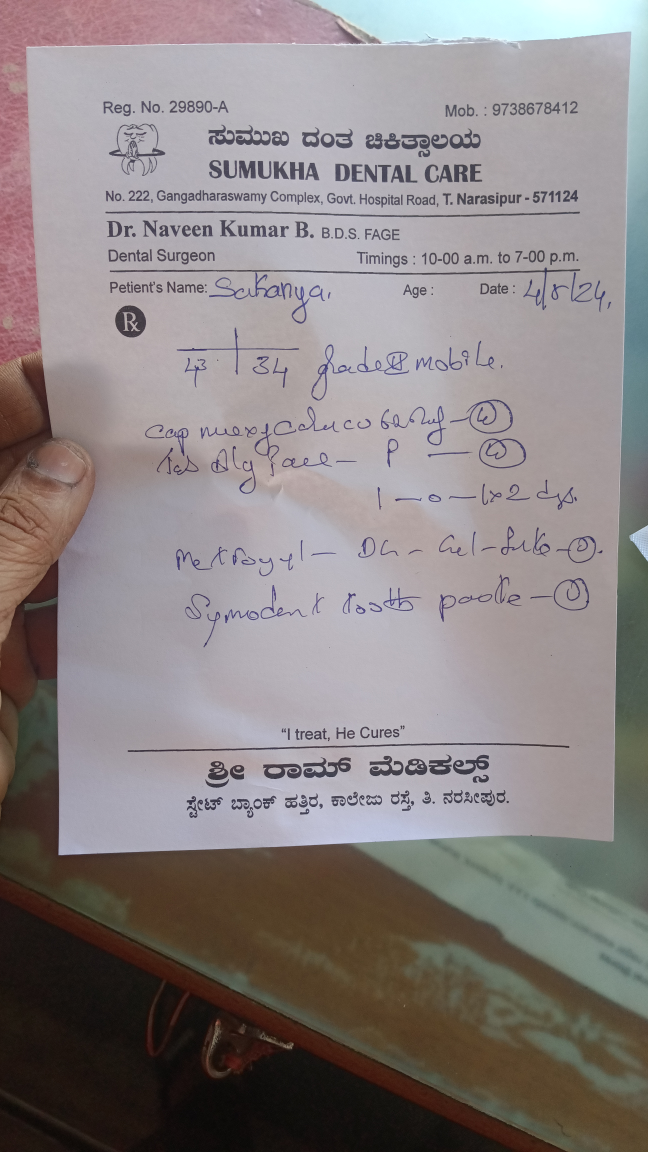 Reg. No. 29890-A
Mob. : 9738678412
ಸುಮುಖ ದಂತ ಚಿಕಿತ್ಸಾಲಯ
SUMUKHA DENTAL CARE
No. 222, Gangadharaswamy Complex, Govt. Hospital Road, T. Narasipur - 571124
Dr. Naveen Kumar B. B.D.S. FAGE
Dental Surgeon
Timings : 10-00 a.m. to 7-00 p.m.
Petient's Name: Sukanya. Age : Date : 4/8/24,
Rx
43 | 34 grade II mobile.
cap
Tab P —
1 — 0 — 1x2 dys.
Metrogyl — DG - Gel -
Symodent tooth paste — 1
"I treat, He Cures"
ಶ್ರೀ ರಾಮ್ ಮೆಡಿಕಲ್ಸ್
ಸ್ಟೇಟ್ ಬ್ಯಾಂಕ್ ಹತ್ತಿರ, ಕಾಲೇಜು ರಸ್ತೆ, ತಿ. ನರಸೀಪುರ.